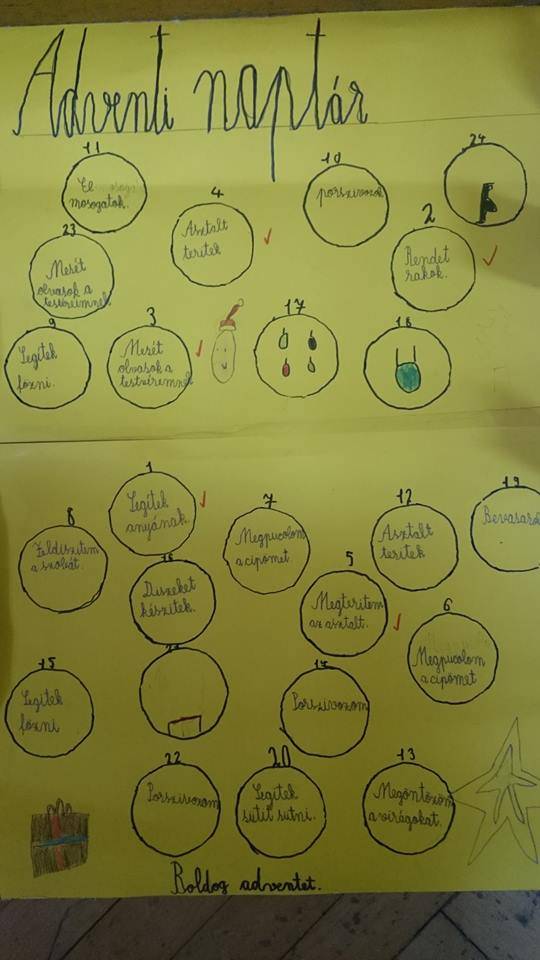 Adventi naptár
11
El
mosogatok.
4
Asztalt
terítek
10
porszívozok
24
23
Mesét
olvasok a
testéreimnek
2
Rendet
rakok.
9
Legítek
főzni.
3
Mesét
olvasok a
testvéreimnek
17
18
1
Legítek
anyának.
8
Feldíszítem
a szobát.
7
Megpucolom
a cipőmet
12
Asztalt
terítek
19
Bevásárol
16
Díszeket
készítek.
5
Megterítem
az asztalt.
6
Megpucolom
a cipőmet
15
Legítek
főzni
Porszívozom
22
Porszívozom
20
Legítek
sütit sütni.
13
Megöntözöm
a virágokat.
Boldog adventet.